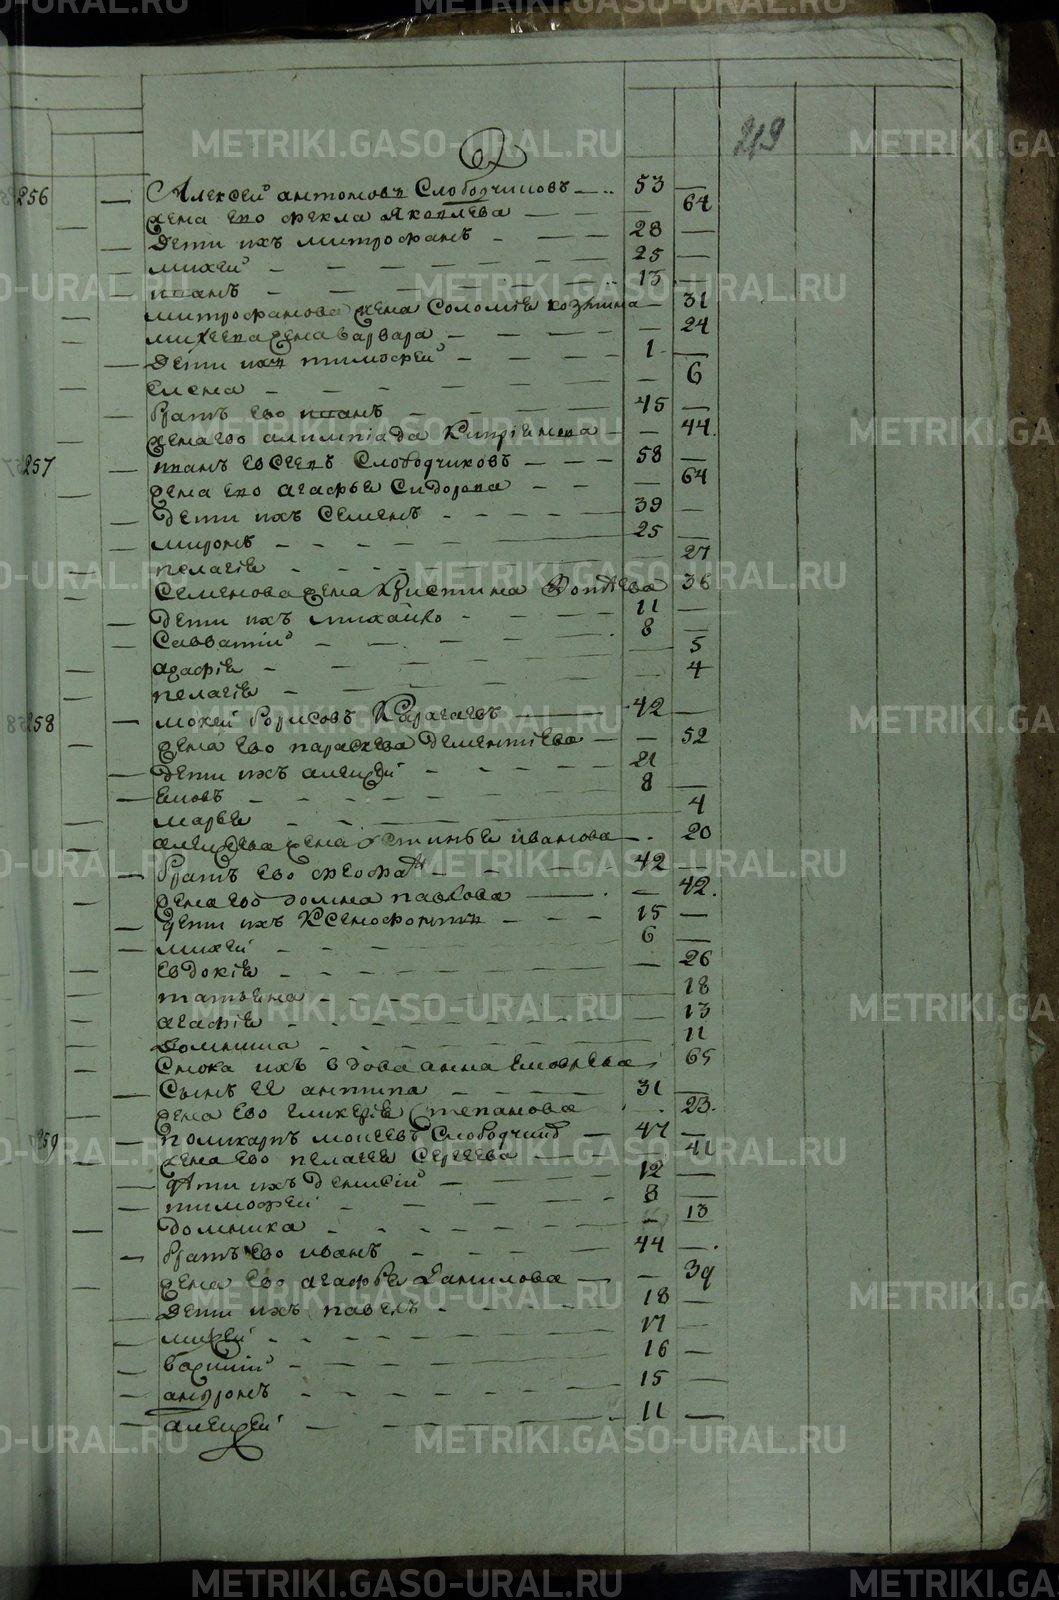 219
256 Алексей антоновъ Слободчиковъ 53
жена ево фекла Яковлева 64
Дети ихъ митрофанъ 28
михей 25
иванъ 13
митрофанова жена Соломіе козмина 31
михеева жена варвара 24
Дети ихъ тимофей 1
Елена 6
Братъ ево иванъ 45
жена ево алимпіада Кипріянова 44
257 иванъ Евсеевъ Слободчиковъ 58
жена ево агафье Сидорова 64
Дети ихъ Семенъ 39
миронъ 25
пелагіе 27
Семенова жена Христина 36
Дети ихъ михайло 11
Савватіи 8
агафіе 5
пелагіе 4
258 мокей Борисовъ 42
жена ево параскева Дементіева 52
Дети ихъ алексей 21
8
марье 4
алексеева жена Устинье иванова 20
Братъ ево 42
жена ево домна павлова 42
Дети ихъ Ксенофонтъ 15
михей 6
Евдокіе 26
татьяна 18
агафіе 13
11
Сноха ихъ вдова анна 65
Сынъ ее антипа 31
жена ево гликеріе Степанова 23
259 поликарпъ моисеевъ 47
жена ево пелагее Сергеева 41
Дѣти ихъ Денисій 12
тимофей 8
Домника 13
Братъ ево иванъ 44
жена ево агафье Данилова 39
Дети ихъ павелъ 18
михей 17
василій 16
андронъ 15
алексей 11
METRIKI.GASO-URAL.RU